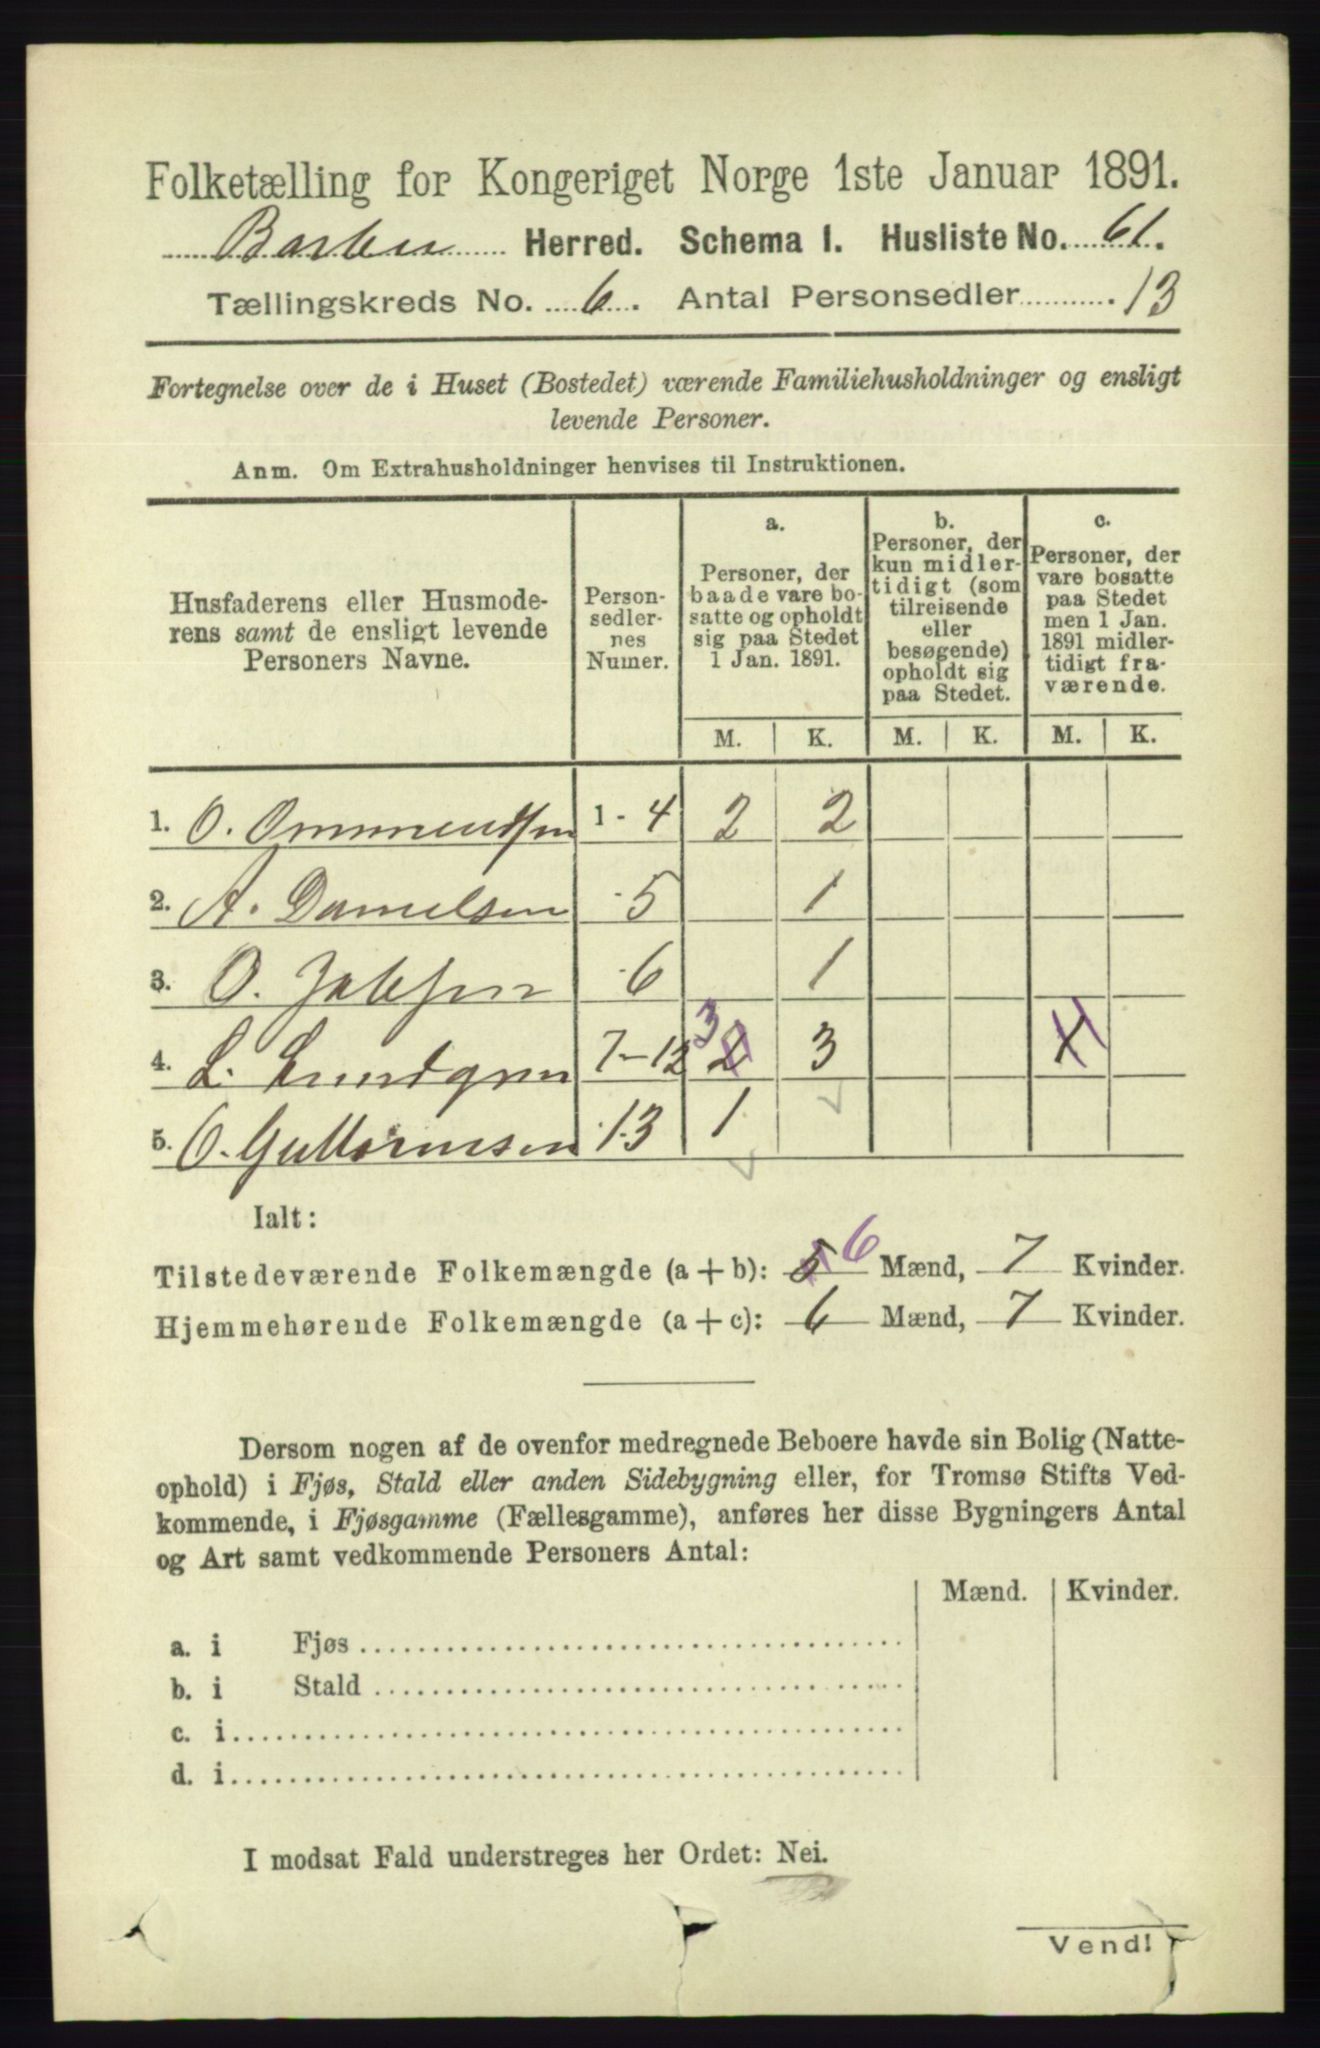 Folketælling for Kongeriget Norge 1ste Januar 1891.
Barbu Herred. Schema I. Husliste No. 61.
Tællingskreds No. 6. Antal Personsedler 13
Fortegnelse over de i Huset (Bostedet) værende Familiehusholdninger og ensligt
levende Personer.
Anm. Om Extrahusholdninger henvises til Instruktionen.
Husfaderens eller Husmode-
rens samt de ensligt levende
Personers Navne.
Person-
sedler-
nes
Numer.
a.
Personer, der
baade vare bo-
satte og opholdt
sig paa Stedet
1 Jan. 1891.
b.
Personer, der
kun midler-
tidigt (som
tilreisende
eller
besøgende)
opholdt sig
paa Stedet.
c.
Personer, der
vare bosatte
paa Stedet
men 1 Jan.
1891 midler-
tidigt fra-
værende.
M. K. M. K. M. K.
1. O. Ommundsen 1 - 4 2 2
2. A. Danielsen 5 1
3. O. Jakobsen 6 1
4. L. Lundgren 7-12 2 3 3 1
5. O. Guttormsen 13 1
Ialt:
Tilstedeværende Folkemængde (a + b): 5 6 Mænd, 7 Kvinder.
Hjemmehørende Folkemængde (a + c): 6 Mænd, 7 Kvinder.
Dersom nogen af de ovenfor medregnede Beboere havde sin Bolig (Natte-
ophold) i Fjøs, Stald eller anden Sidebygning eller, for Tromsø Stifts Ved-
kommende, i Fjøsgamme (Fællesgamme), anføres her disse Bygningers Antal
og Art samt vedkommende Personers Antal:
Mænd. Kvinder.
a. i Fjøs
b. i Stald
c. i
d. i
I modsat Fald understreges her Ordet: Nei.
Vend!